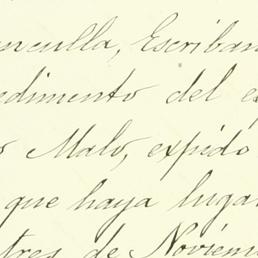 Escriban
edimento del e
o Malo, expido
que haya lugar
tres de Noviem